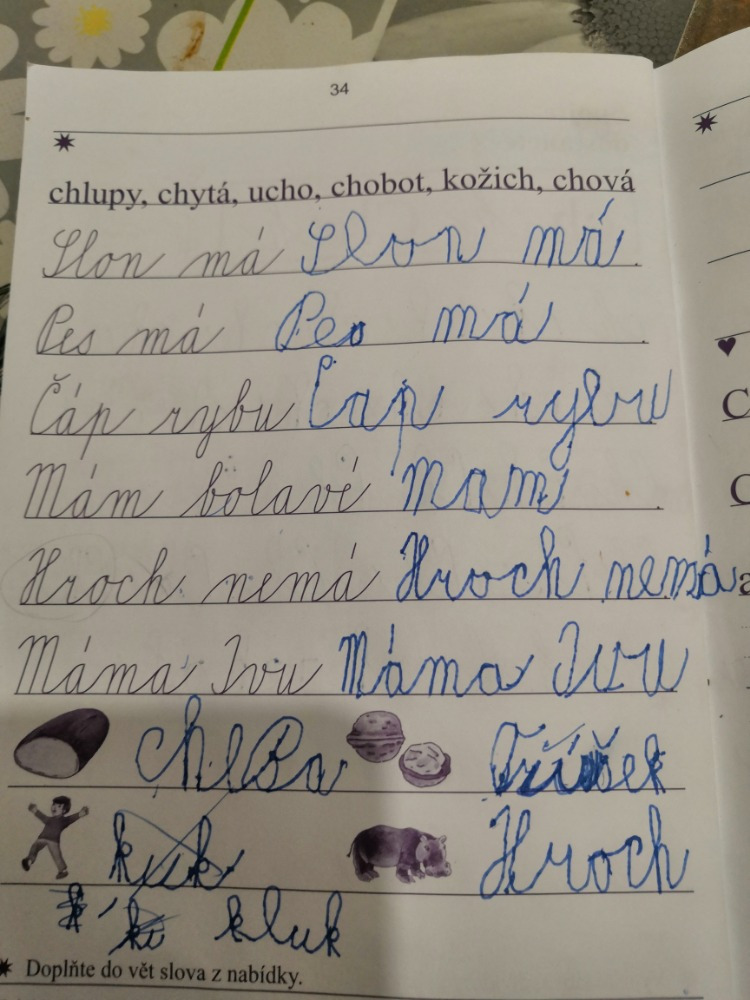 34
chlupy, chytá, ucho, chobot, kožich, chová
Slon má Slon má .
Pes má Pes má .
Čáp rybu Čáp rybu
Mám bolavé Mám .
Hroch nemá Hroch nemá
Máma Ivu Máma Ivu
chleba Oříšek
kuk Hroch
kluk
Doplňte do vět slova z nabídky.